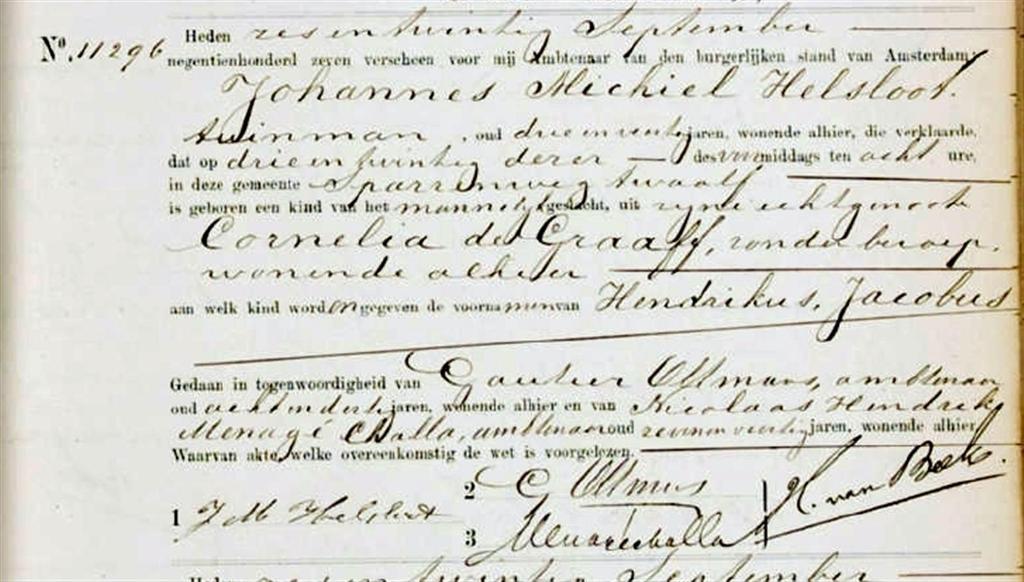 No. 11296
Heden zes en twintig September
negentienhonderd zeven verscheen voor mij Ambtenaar van den burgerlijken stand van Amsterdam:
Johannes Michiel Helsloot.
tuinman, oud drie en veertig jaren, wonende alhier, die verklaarde,
dat op drie en twintig dezer — des voormiddags ten acht ure,
in deze gemeente Sparrenweg twaalf
is geboren een kind van het mannelijk geslacht, uit zijne echtgenoote
Cornelia de Graaff, zonder beroep,
wonende alhier
aan welk kind worden gegeven de voornamen van Hendrikus, Jacobus
Gedaan in tegenwoordigheid van Gautier Oltmans, ambtenaar
oud achtendertig jaren, wonende alhier en van Nicolaas Hendrik
Menagé Challa, ambtenaar oud zevenenveertig jaren, wonende alhier
Waarvan akte, welke overeenkomstig de wet is voorgelezen.
2 G Oltmans
H. van Beek.
1 J M Helsloot
3 Menagéchalla
Heden zes en twintig September